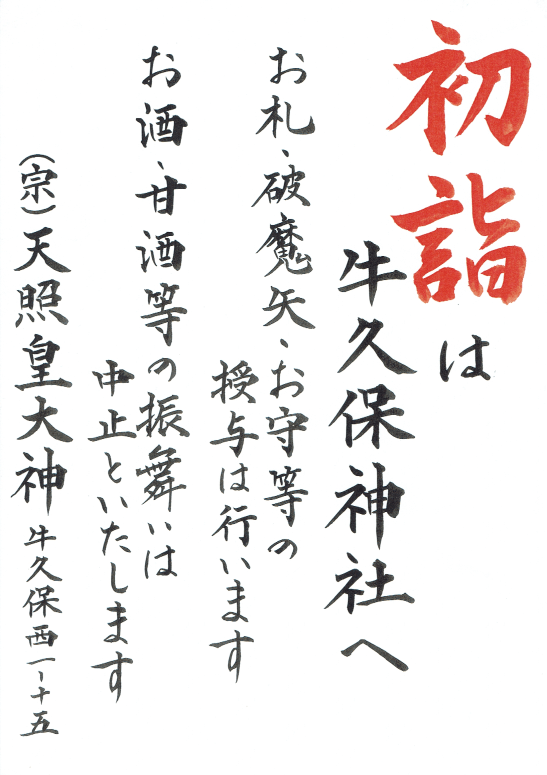 初詣は
牛久保神社へ
お札、破魔矢、お守等の
授与は行います
お酒、甘酒等の振舞いは
中止といたします
(宗)天照皇大神 牛久保西一ー十五